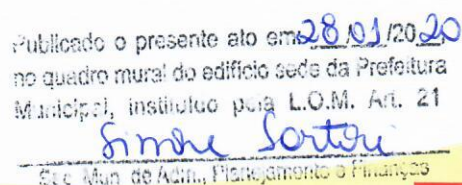 Publicado o presente ato em 28/01/2020
no quadro mural do edifício sede da Prefeitura
Municipal, instituído pela L.O.M. Art. 21
Simone Sartori
Sec. Mun. de Adm., Planejamento e Finanças